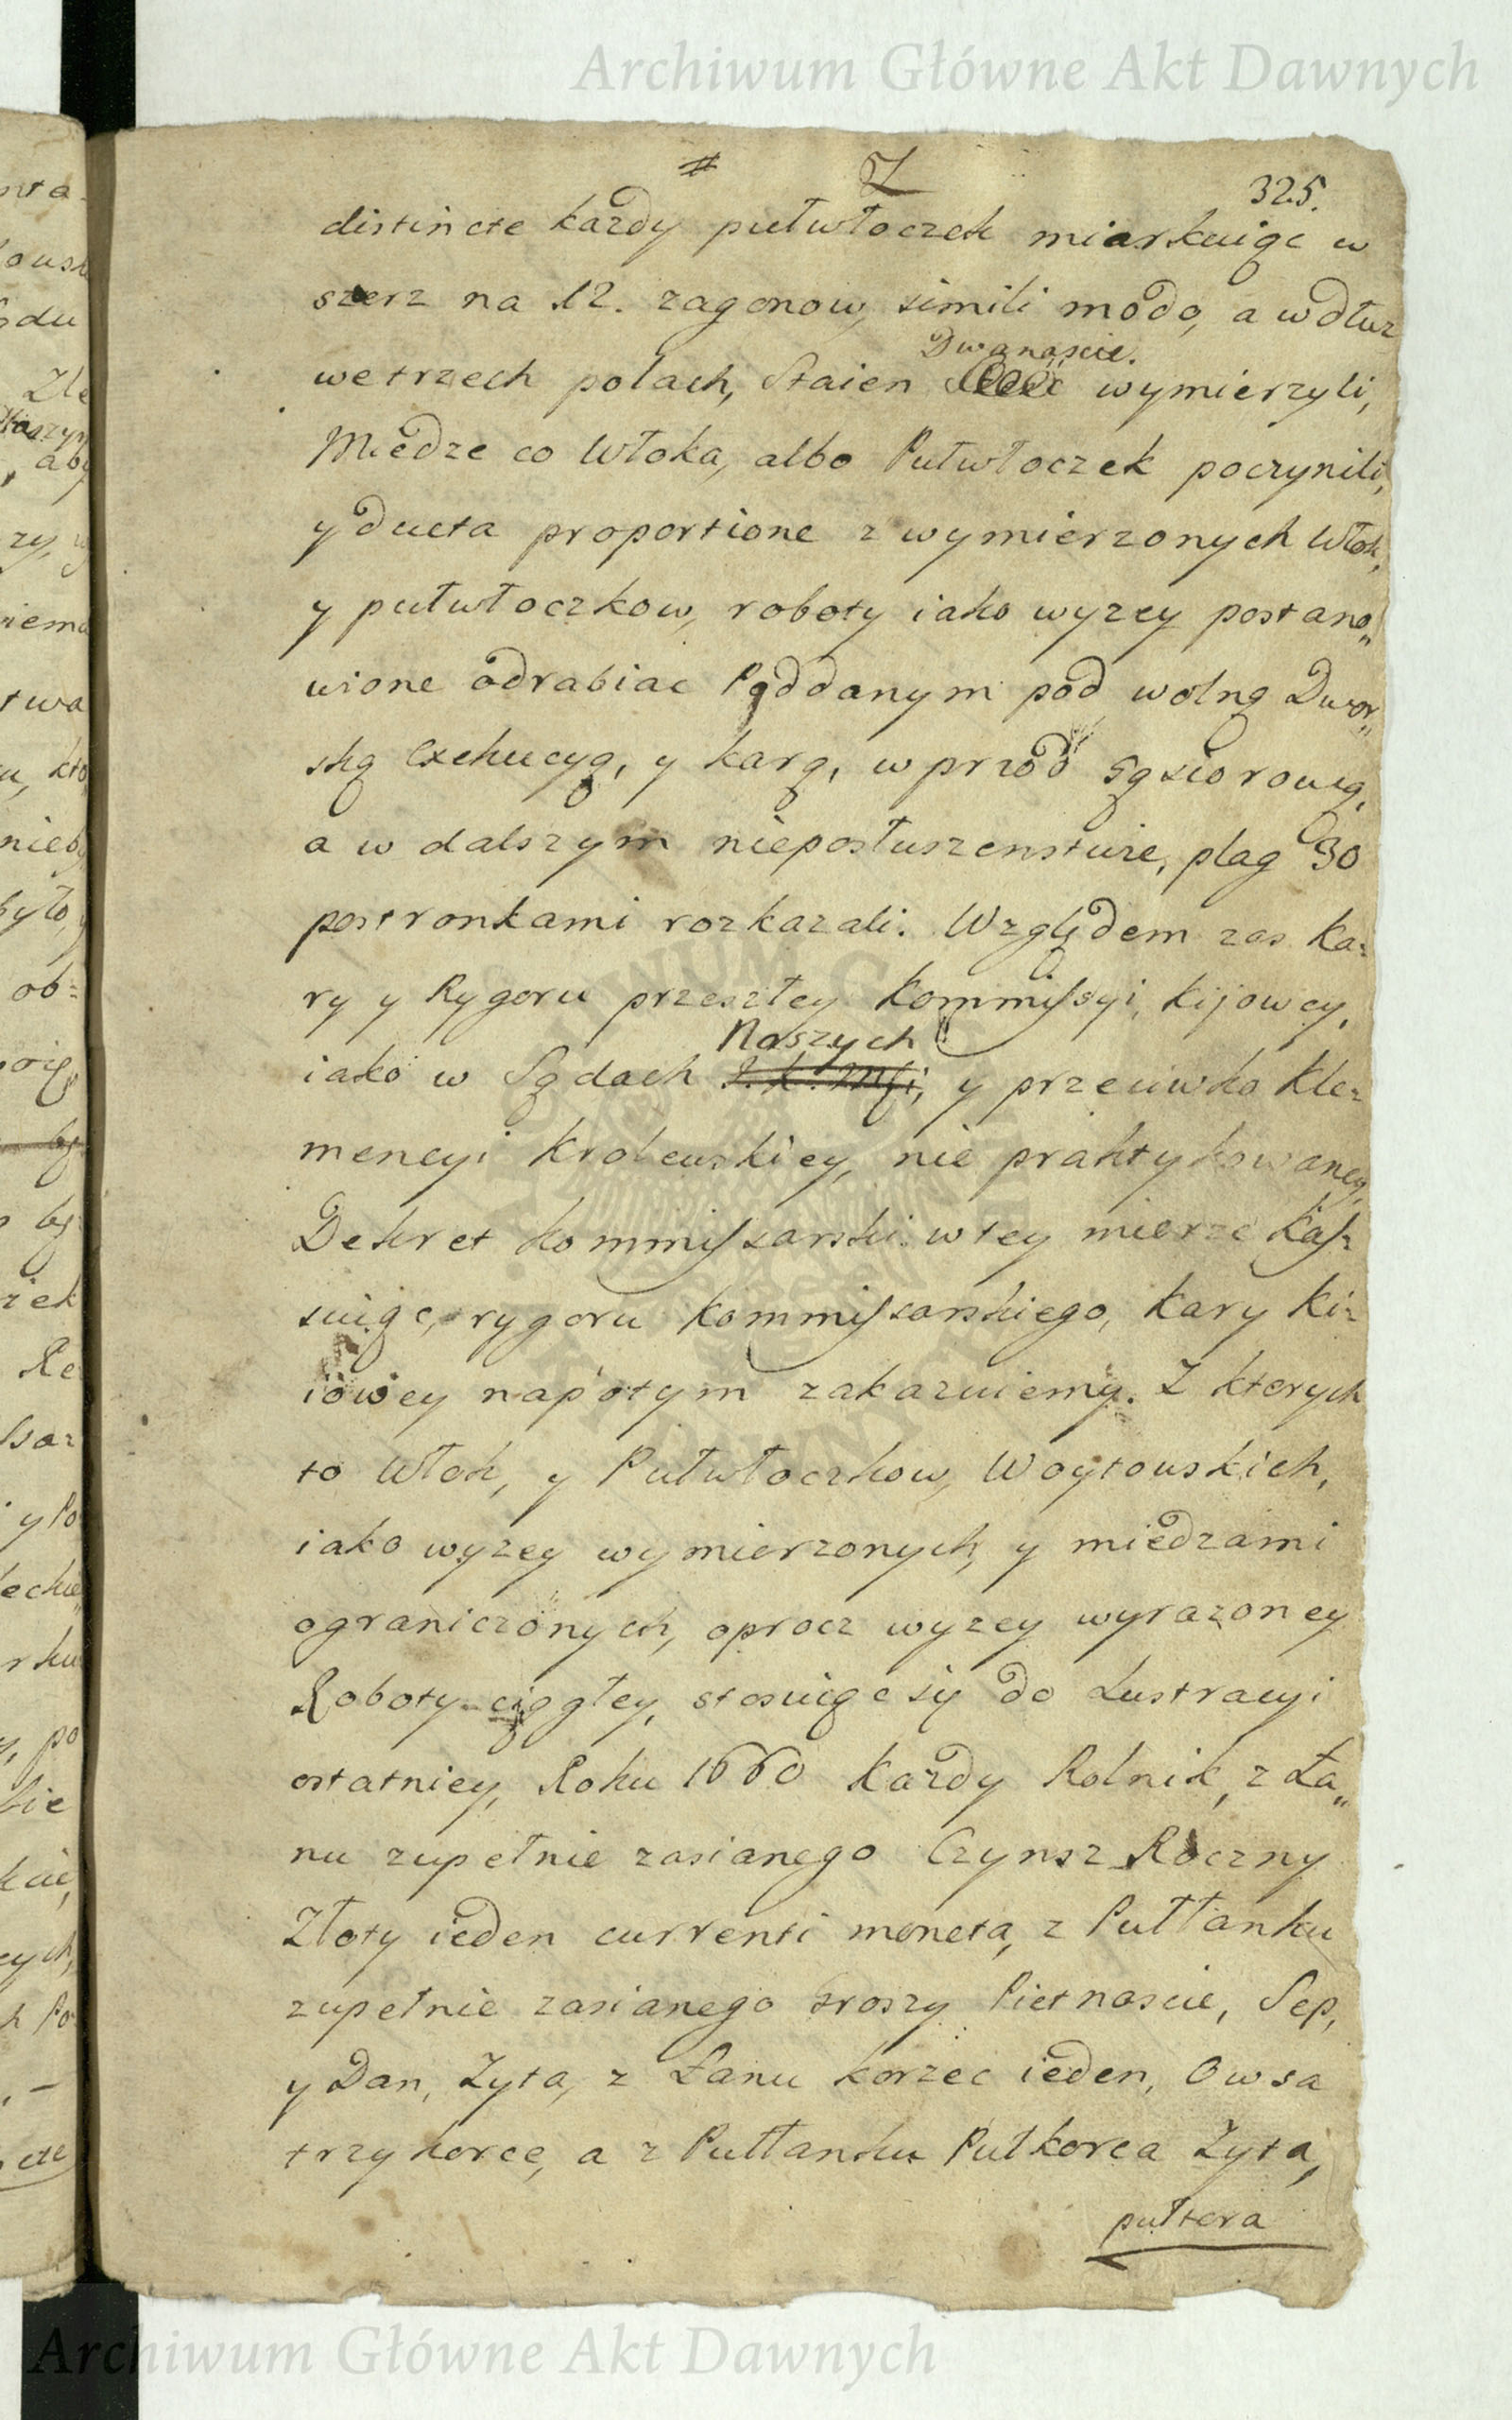 Archiwum Główne Akt Dawnych
# Z 325.
distincte każdy pułwłoczek miarkuiąc w
szerz na 12. zagonow, simili modo, a wdłuz
Dwanaście.
wetrzech polach, Staien wymierzyli,
Miedze co Włoka, albo Pułwłoczek poczynili,
y ducta proportione z wymierzonych Włok,
y pułwłoczkow, roboty iako wyzey postano„
wione odrabiac Poddanym pod wolną Dwor„
ską Exekucyą, y karą, wprzod gąsiorową,
a w dalszym nieposłuszenstwie, plag 30
postronkami rozkazali. Względem zas Ka=
ry y Rygoru przeszłey Kommissyi, kijowey,
Naszych
iako w Sądach J. K. Msci, y przeciwko Kle=
mencyi Krolewskiey, nie praktykowaney,
Dekret kommissarski wtey mierze Kas=
suiąc, rygoru Kommissarskiego, kary ki=
iowey napotym zakazuiemy. Z ktorych
to Włok, y Pułwłoczkow, Woytowskich,
iako wyzey wymierzonych, y miedzami
ograniczonych, oprocz wyzey wyrazoney
Roboty ciągłey, stosuiąc się do Lustracyi
ostatniey, Roku 1660 każdy Rolnik, z Ła„
nu zupełnie zasianego Czynsz Roczny
Złoty ieden currenti moneta, z Pułłanku
zupełnie zasianego groszy Pietnascie, Sep,
y Dan, Zyta, z Łanu korzec ieden, Owsa
trzy korce, a z Pułłanku Pułkorca Zyta,
pułtora
Archiwum Główne Akt Dawnych